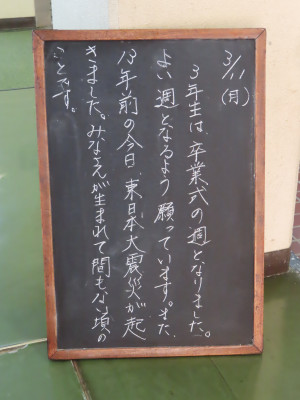 3/11(月)
3年生は、卒業式の週となりました。
よい週となるよう願っています。また、
13年前の今日、東日本大震災が起
きました。みなさんが生まれて間もない頃の
ことです。